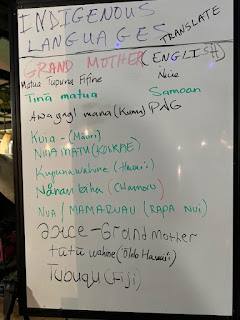 INDIGENOUS
LANGUAGES TRANSLATE
GRAND MOTHER (ENGLISH)
Matua Tupuna Fifine Niue
Tinā matua Samoan
mana (Kuman) PNG
Kuia - (Māori)
NINA MATU (KOSRAE)
Kupunawahine (Hawai'i)
Nånan biha (CHAMORU)
NUA / MAMARUAU (RAPA NUI)
Grand Mother
tūtū wahine (Oldo Hawai'i)
Tubuqu (Fiji)